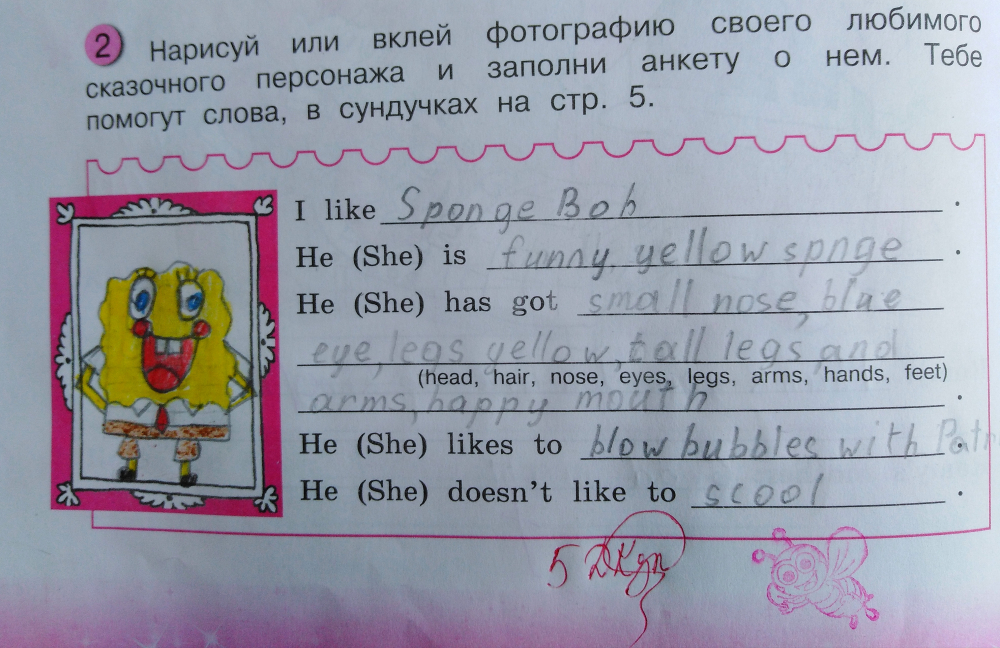 2 Нарисуй или вклей фотографию своего любимого
сказочного персонажа и заполни анкету о нем. Тебе
помогут слова, в сундучках на стр. 5.
I like Sponge Bob.
He (She) is funny, yellow spnge.
He (She) has got small nose, blue
eye, legs yellow, tall legs, and
(head, hair, nose, eyes, legs, arms, hands, feet)
arms, happy mouth.
He (She) likes to blow bubbles with Patr.
He (She) doesn't like to scool.
5